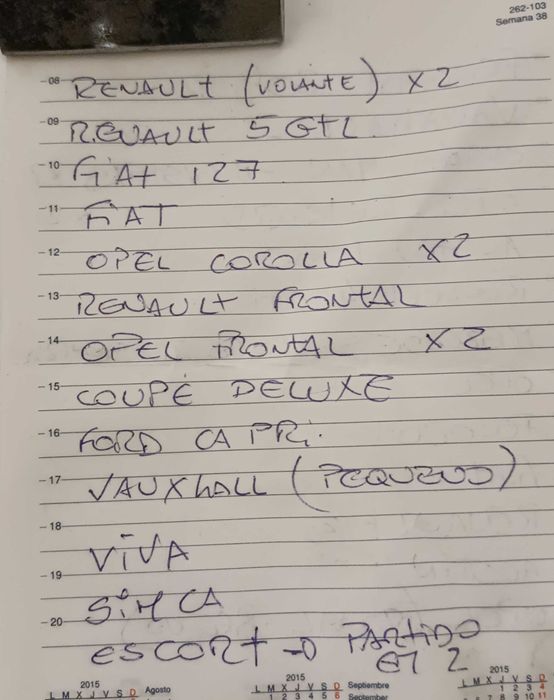 262-103
Semana 38
08 RENAULT (VOLANTE) x2
09 RENAULT 5 GTL
10 FiAt 127
11 FiAT
12 OPEL COROLLA x2
13 RENAULT FRONTAL
14 OPEL FRONTAL x2
15 COUPÉ DELUXE
16 FORD CAPRi.
17 VAUXHALL (PEQUEÑO)
18
ViVA
19
SiMCA
20
ESCORT → PARTIDO
EN 2
2015
L M X J V S D Agosto
2015
L M X J V S D Septiembre
1 2 3 4 5 6 September
2015
L M X J V S D
1 2 3 4
7 8 9 10 11